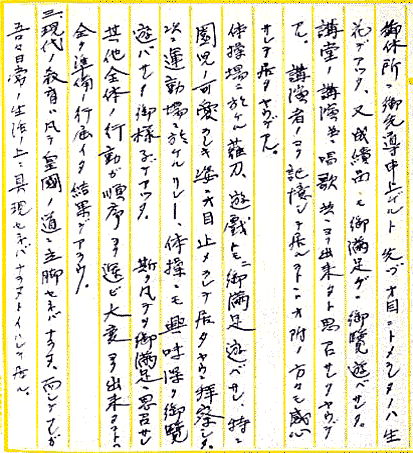 御休所ニ御先導申上ゲルト先ヅオ目ニトメラレタノハ生
花デアツタ、又成績品ニモ御満足ゲニ御覧遊バサレタ。
講堂ノ講演並唱歌共ニヨク出来タト思召サレタヤウデ
モ、講演者ノヨク記憶シテ居ルコトニオ附ノ方々モ感心
サレテ居タヤウデアル。
体操場ニ於ケル薙刀、遊戯トモニ御満足遊バサレ、特ニ
園児ノ可愛ラシキ姿ニオ目止メラレテ居タヤウニ拝察シタ。
次ニ運動場ニ於ケルリレー、体操ニモ興味深ク御覧
遊バサレタ御様子デアツタ。斯ク凡テ御満足ニ思召サレ
其他全体ノ行動ガ順序ヨク運ビ大変ヨク出来タコトハ
全ク準備ノ行届イタ結果デアラウ。
三、現代ノ教育ハ凡テ皇國ノ道ニ立脚セネバナラヌ、而シテコレガ
吾々日常ノ生活ノ上ニ具現セネバナラヌトイハレテ居ル。